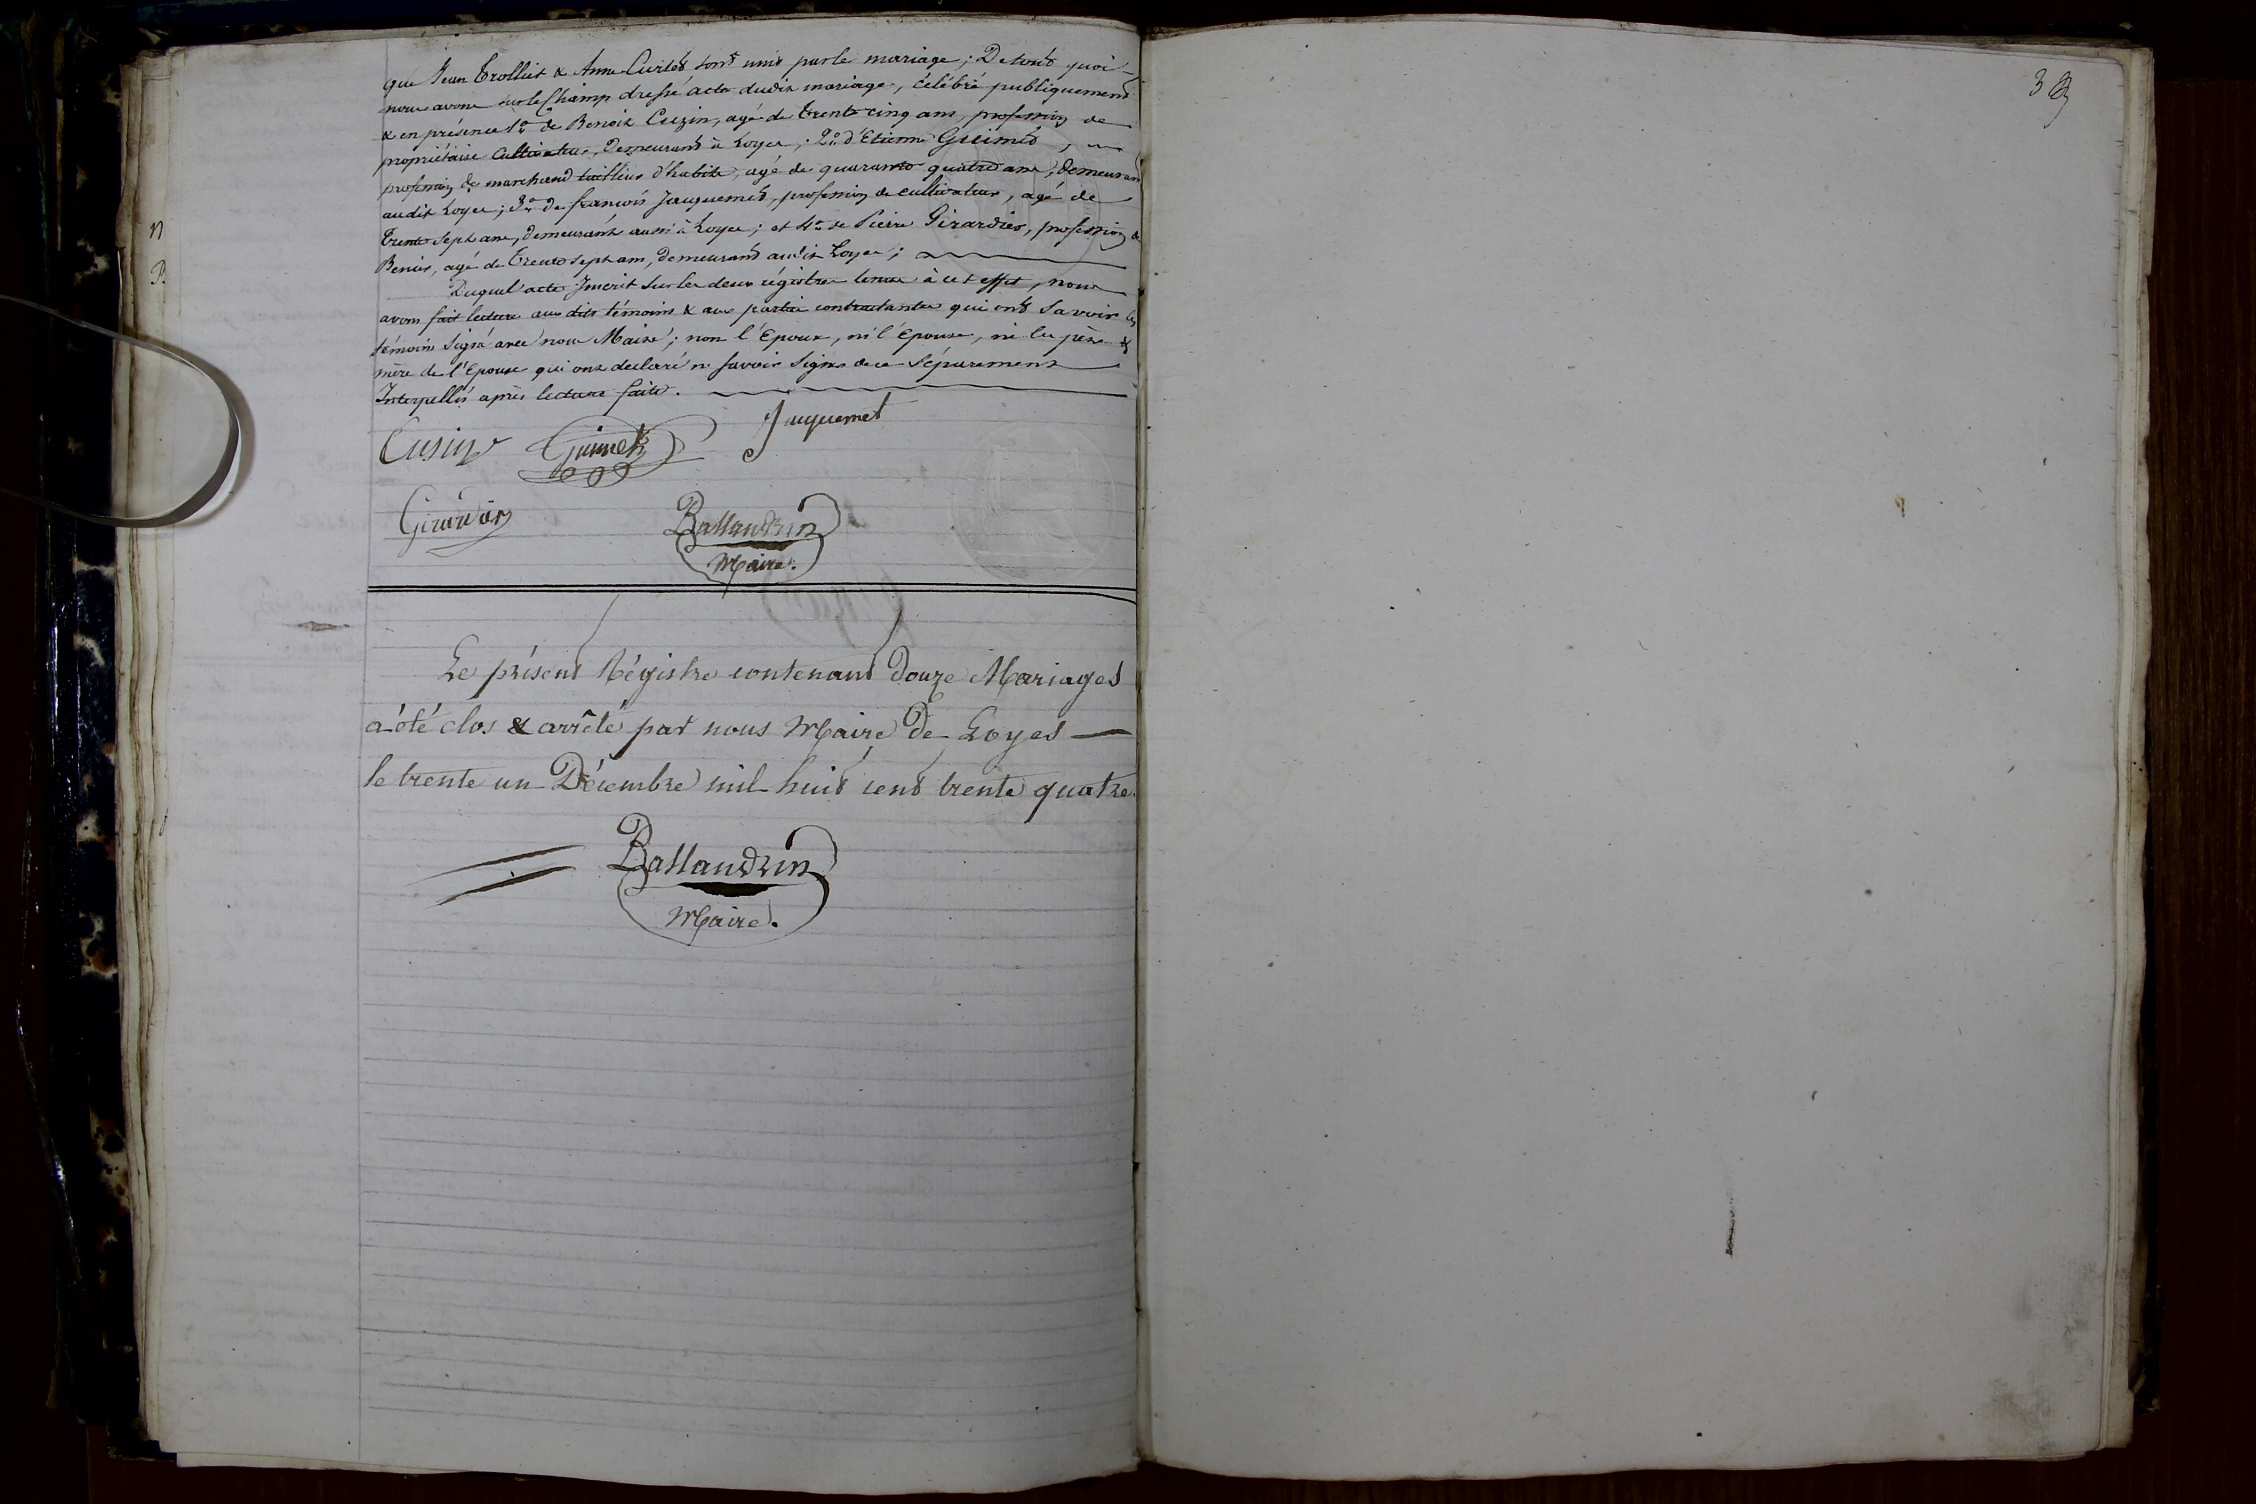 que Jean Trolliet & Anne Curtet sont unis par le mariage ; De tout quoi
nous avons sur le Champ dressé acte dudit mariage, célébré publiquement
& en présence 1o. de Benoit Cuzin, agé de trente cinq ans, profession de
propriétaire Cultivateur, Demeurant à Loyes ; 2o. d'Etienne Guimet,
profession de marchand tailleur d'habits, agé de quarante quatre ans, demeurant
audit Loyes ; 3o. de françois Jauguemet, profession de cultivateur, agé de
trente sept ans, demeurant aussi à Loyes ; et 4o. de Pierre Girardier, profession de
agé de trente sept ans, demeurant audit Loyes ;
Duquel acte Inscrit sur les deux régistres tenus à cet effet, nous
avons fait lecture aux dits témoins & aux parties contractantes qui ont Savoir les
témoins Signé avec nous Maire ; non l'Epoux, ni l'Epouse, ni les père &
mère de l'Epouse qui ont déclaré ne savoir Signer de ce Séparement
Interpellés après lecture faite.
Cusin Guimet Jauguemet
Girardier Ballandrin
Maire.
Le présent Régistre contenant Douze Mariages
a été clos & arrêté par nous Maire De Loyes
le trente un Décembre mil huit cent trente quatre.
Ballandrin
Maire.